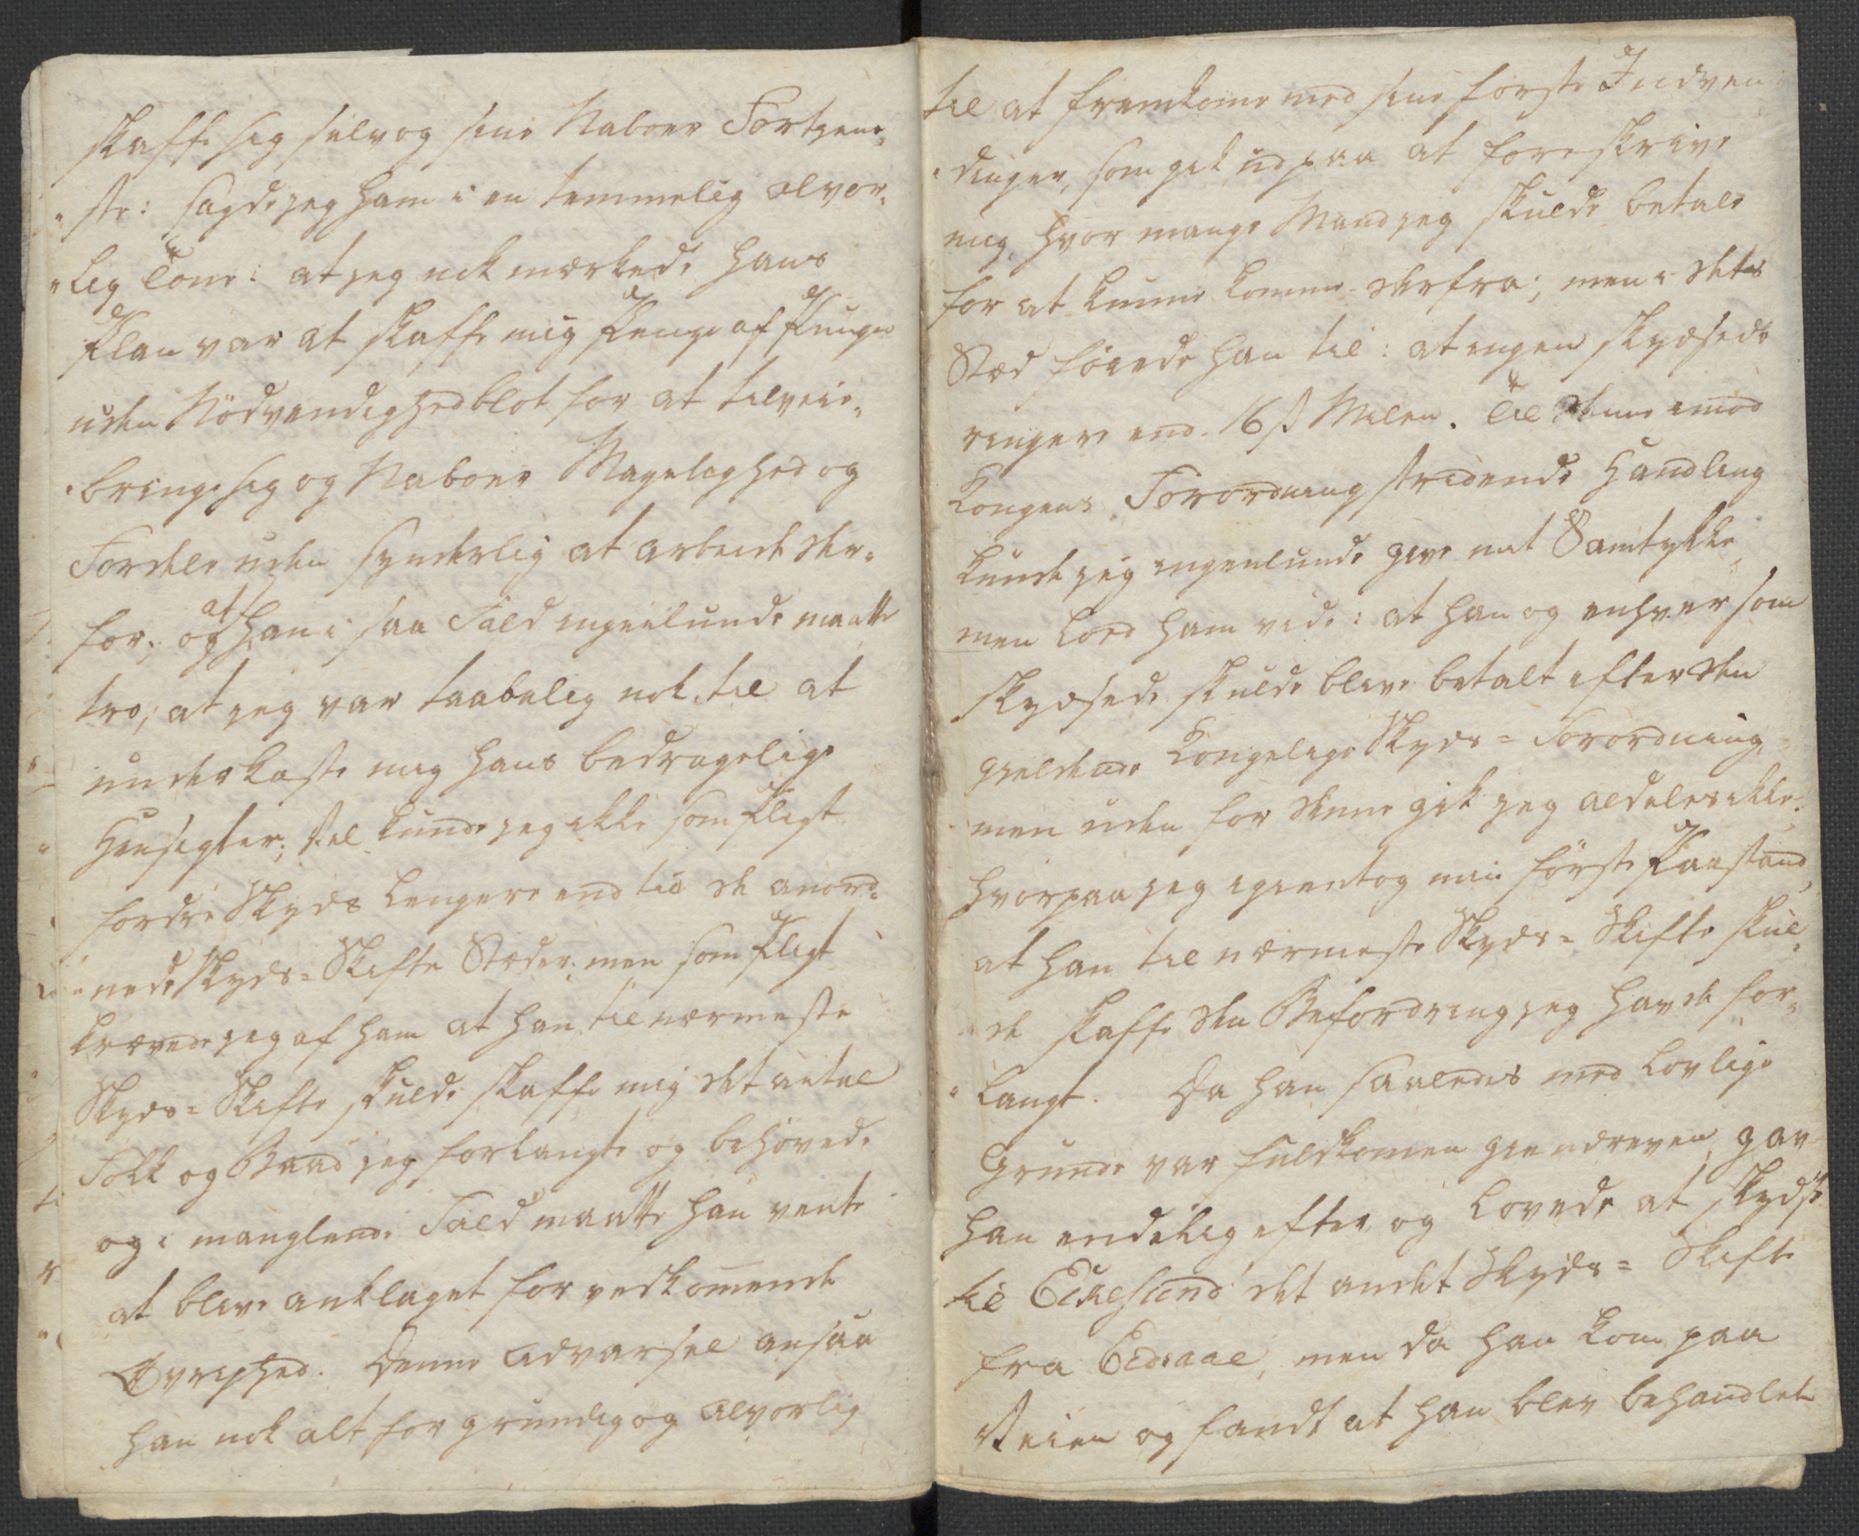 skaffe sig selv og sine Naboer Fortjene-
ste: sagde jeg ham i en temmelig alvor-
lig Tone: at jeg nok mærkede hans
Plan var at skaffe mig Penge af Pungen
uden Nödvendighed blot for at tilveie-
bringe sig og Naboer Magelighed og
Fordele uden synderlig at arbeide der-
for; og at han i saa Fald ingenlunde maatte
troe, at jeg var taabelig nok til at
underkaste mig hans bedragelige
Hensigter; Vel kunde jeg ikke som Pligt
fordre Skyds længere end til de anord-
nede Skyds=Skifte Stæder, men som Pligt
krævede jeg af ham at han til nærmeste
Skyds=Skifte skulde skaffe mig det antal
Folk og Baad jeg forlangte og behövede
og i manglende Fald maatte han vente
at blive anklaget for vedkommende
Øvrighed. Denne advarsel ansaa
han nok alt for grundig og alvorlig
til at fremkome med sine förste Indven-
dinger, som gik ud paa at foreskrive
mig, hvor mange Mand jeg skulde betale
for at kunne komme derfra; men i dets
Stæd föiede han til: at ingen skydsede
ringere end 16 ß Milen. Til denne imod
Kongens Forordning stridende Handling
kunde jeg ingenlunde give mit Samtykke
men lod ham vide: at han og enhver som
skydsede skulde blive betalt efter den
gjeldende Kongelige Skyds=Forordning,
men uden for denne gik jeg aldeles ikke.
hvorpaa jeg igientog min förste Paastand,
at han til nærmeste Skyds=Skifte skul-
de skaffe den Befordring jeg havde for-
langt. Da han saaledes med Lovlige
Grunde var fuldkomen giendreven, gav
han endelig efter og lovede at skydse
til det andet Skyds=Skifte
fra men da han kom paa
Veien og fandt at han blev behandlet